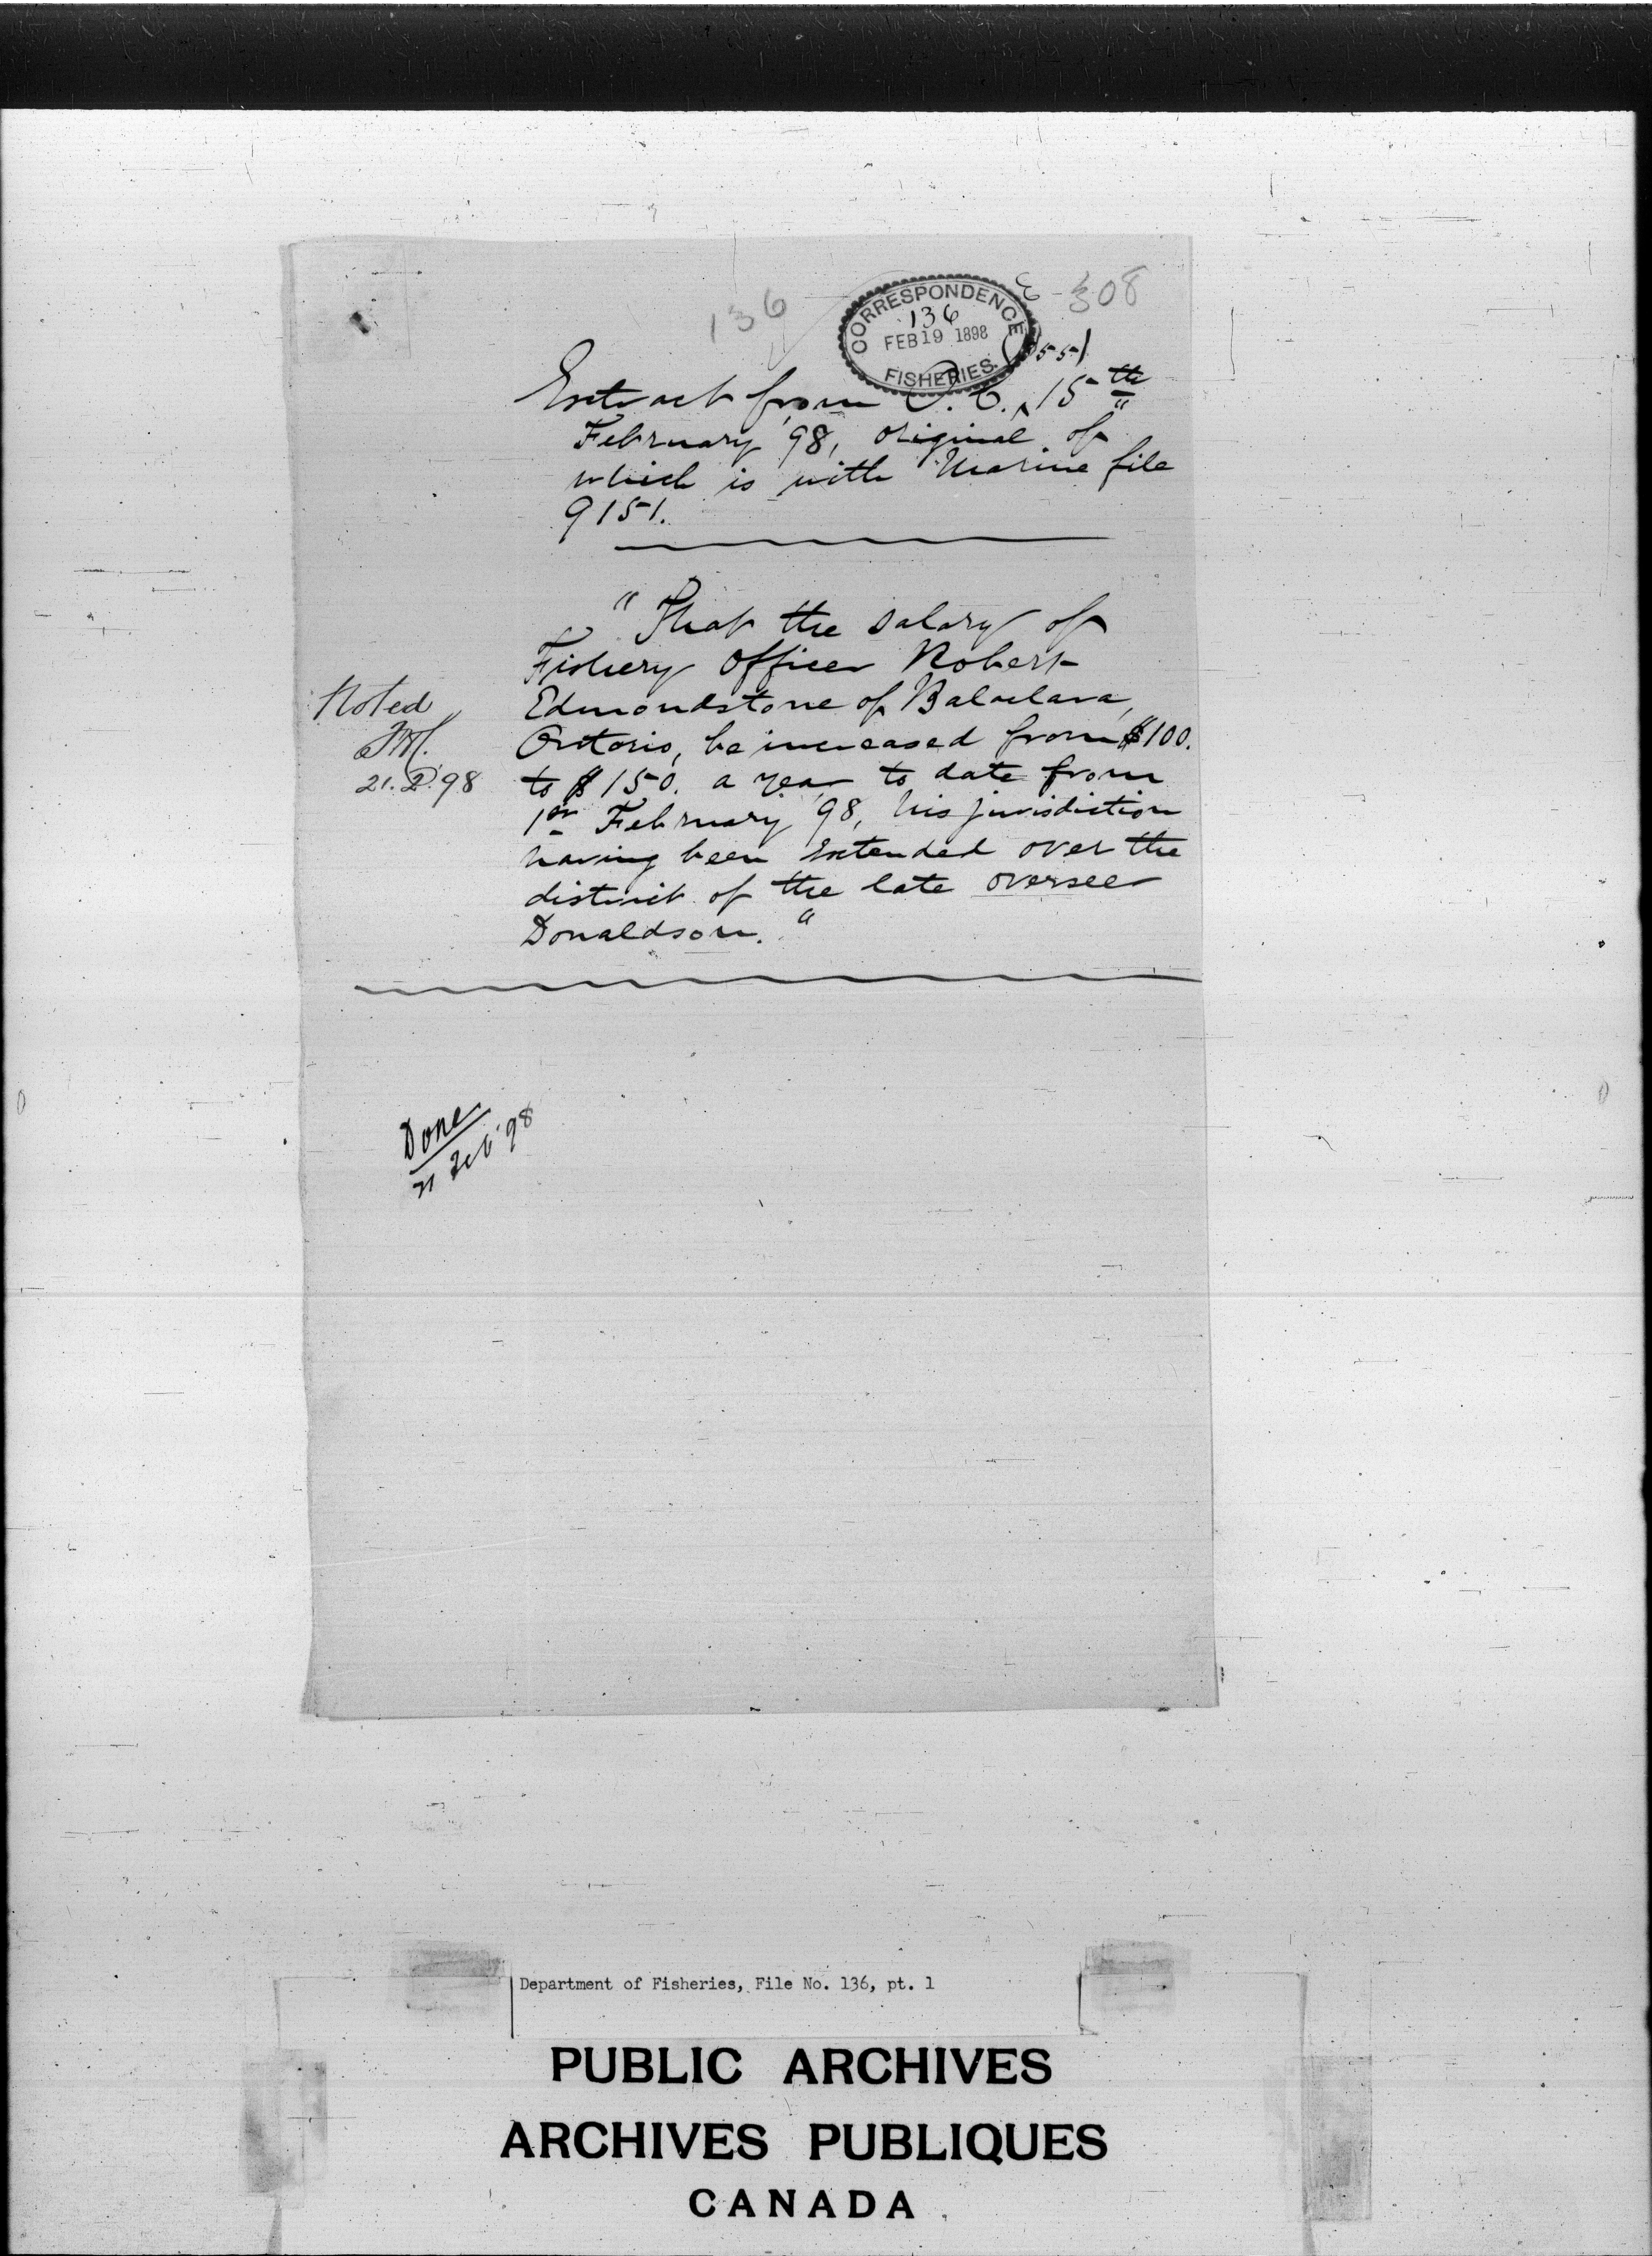 136
E 308
CORRESPONDENCE
136
FEB 19 1898
FISHERIES.
Extract from P.C. 15th
February '98, original of
which is with Marine file
9151.
"That the salary of
Fishery Officer Robert
Edmondstone of Balaclava,
Ontario, be increased from $100.
to $150. a year to date from
1st February '98, his jurisdiction
having been extended over the
district of the late overseer
Donaldson."
Noted
21.2.98
Done
21 Feb '98
Department of Fisheries, File No. 136, pt. 1
PUBLIC ARCHIVES
ARCHIVES PUBLIQUES
CANADA